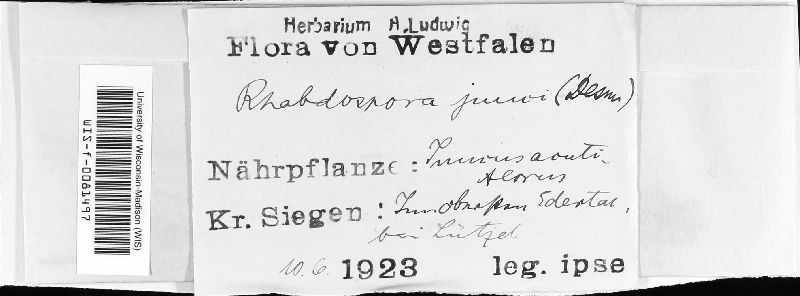 Herbarium H. Ludwig
Flora von Westfalen
Rhabdospora junci (Desm)
Nährpflanze: Juncus acuti-
florus
Kr. Siegen: Edertal,
bei Lützel
10. 6. 1923 leg. ipse
University of Wisconsin-Madison (WIS)
WIS-f-0081497